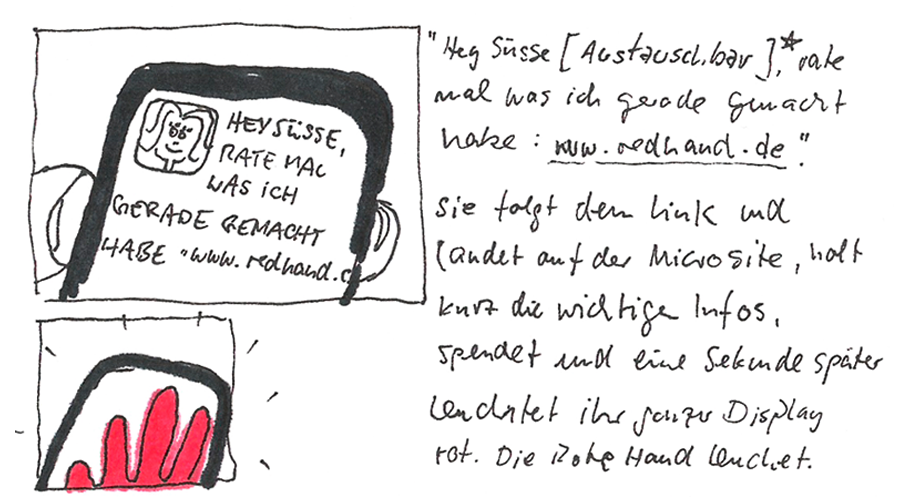 HEY SÜSSE,
RATE MAL
WAS ICH
GERADE GEMACHT
HABE "www.redhand.d
"Hey Süsse [Austauschbar],* rate
mal was ich gerade gemacht
habe: www.redhand.de".
Sie folgt dem Link und
landet auf der Microsite, holt
kurz die wichtige Infos,
spendet und eine Sekunde später
leuchtet ihr ganzer Display
rot. Die Rote Hand leuchtet.